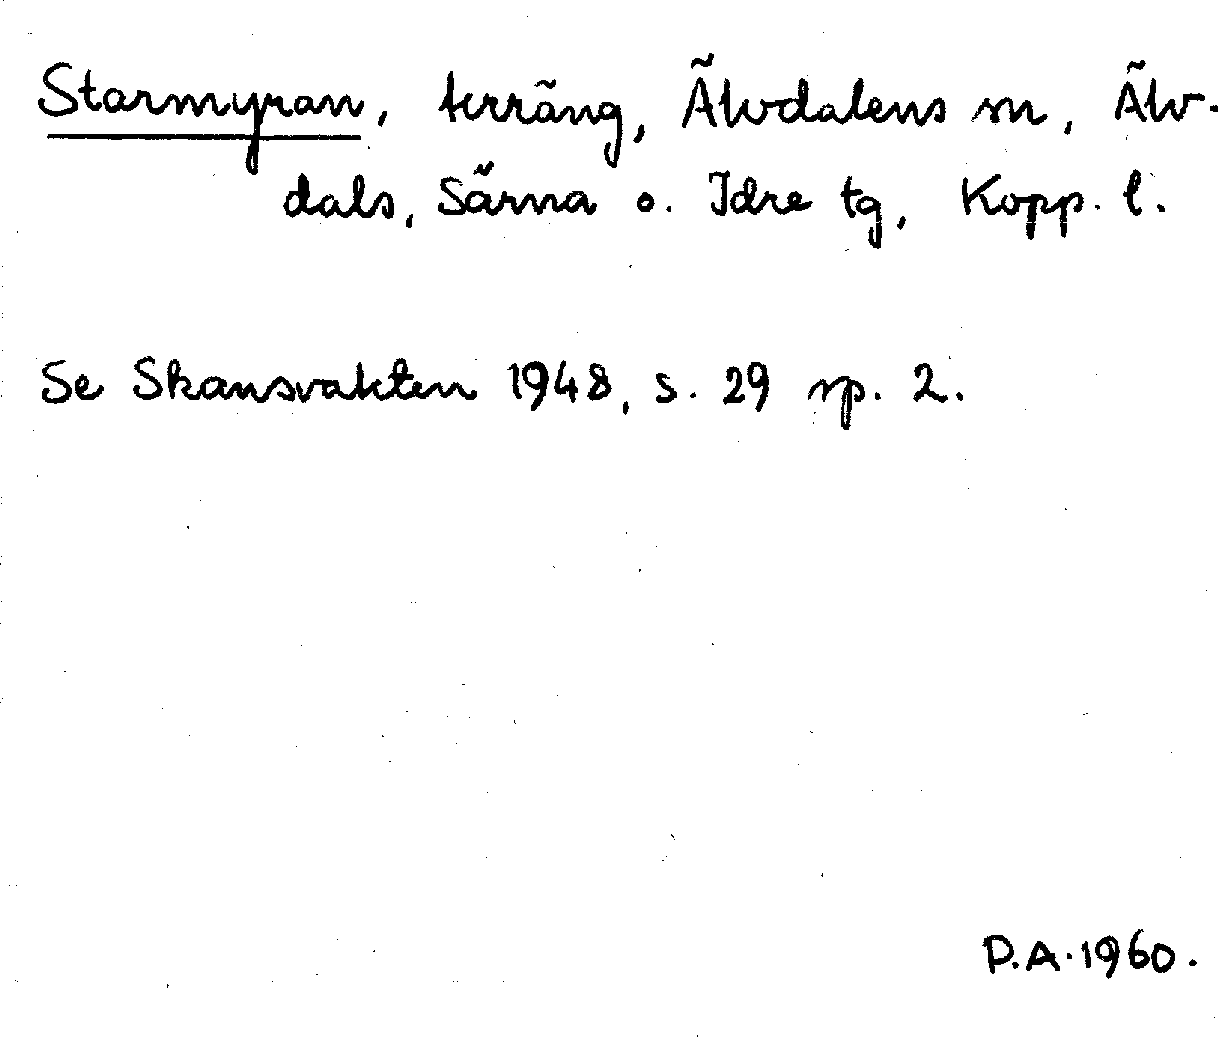 Starmyran, terräng, Älvdalens sn, Älv-
dals, Särna o. Idre tg, Kopp. l.
Se Skansvakten 1948, s. 29 sp. 2.
P.A. 1960.